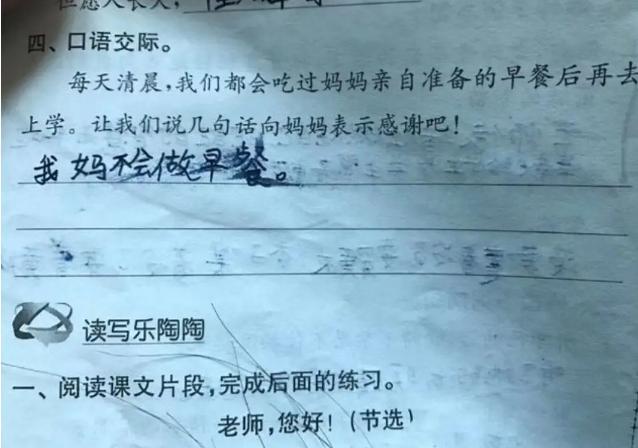 但愿人长久,
四、口语交际。
每天清晨,我们都会吃过妈妈亲自准备的早餐后再去
上学。让我们说几句话向妈妈表示感谢吧!
我妈不会做早餐。
读写乐陶陶
一、阅读课文片段,完成后面的练习。
老师,您好!(节选)